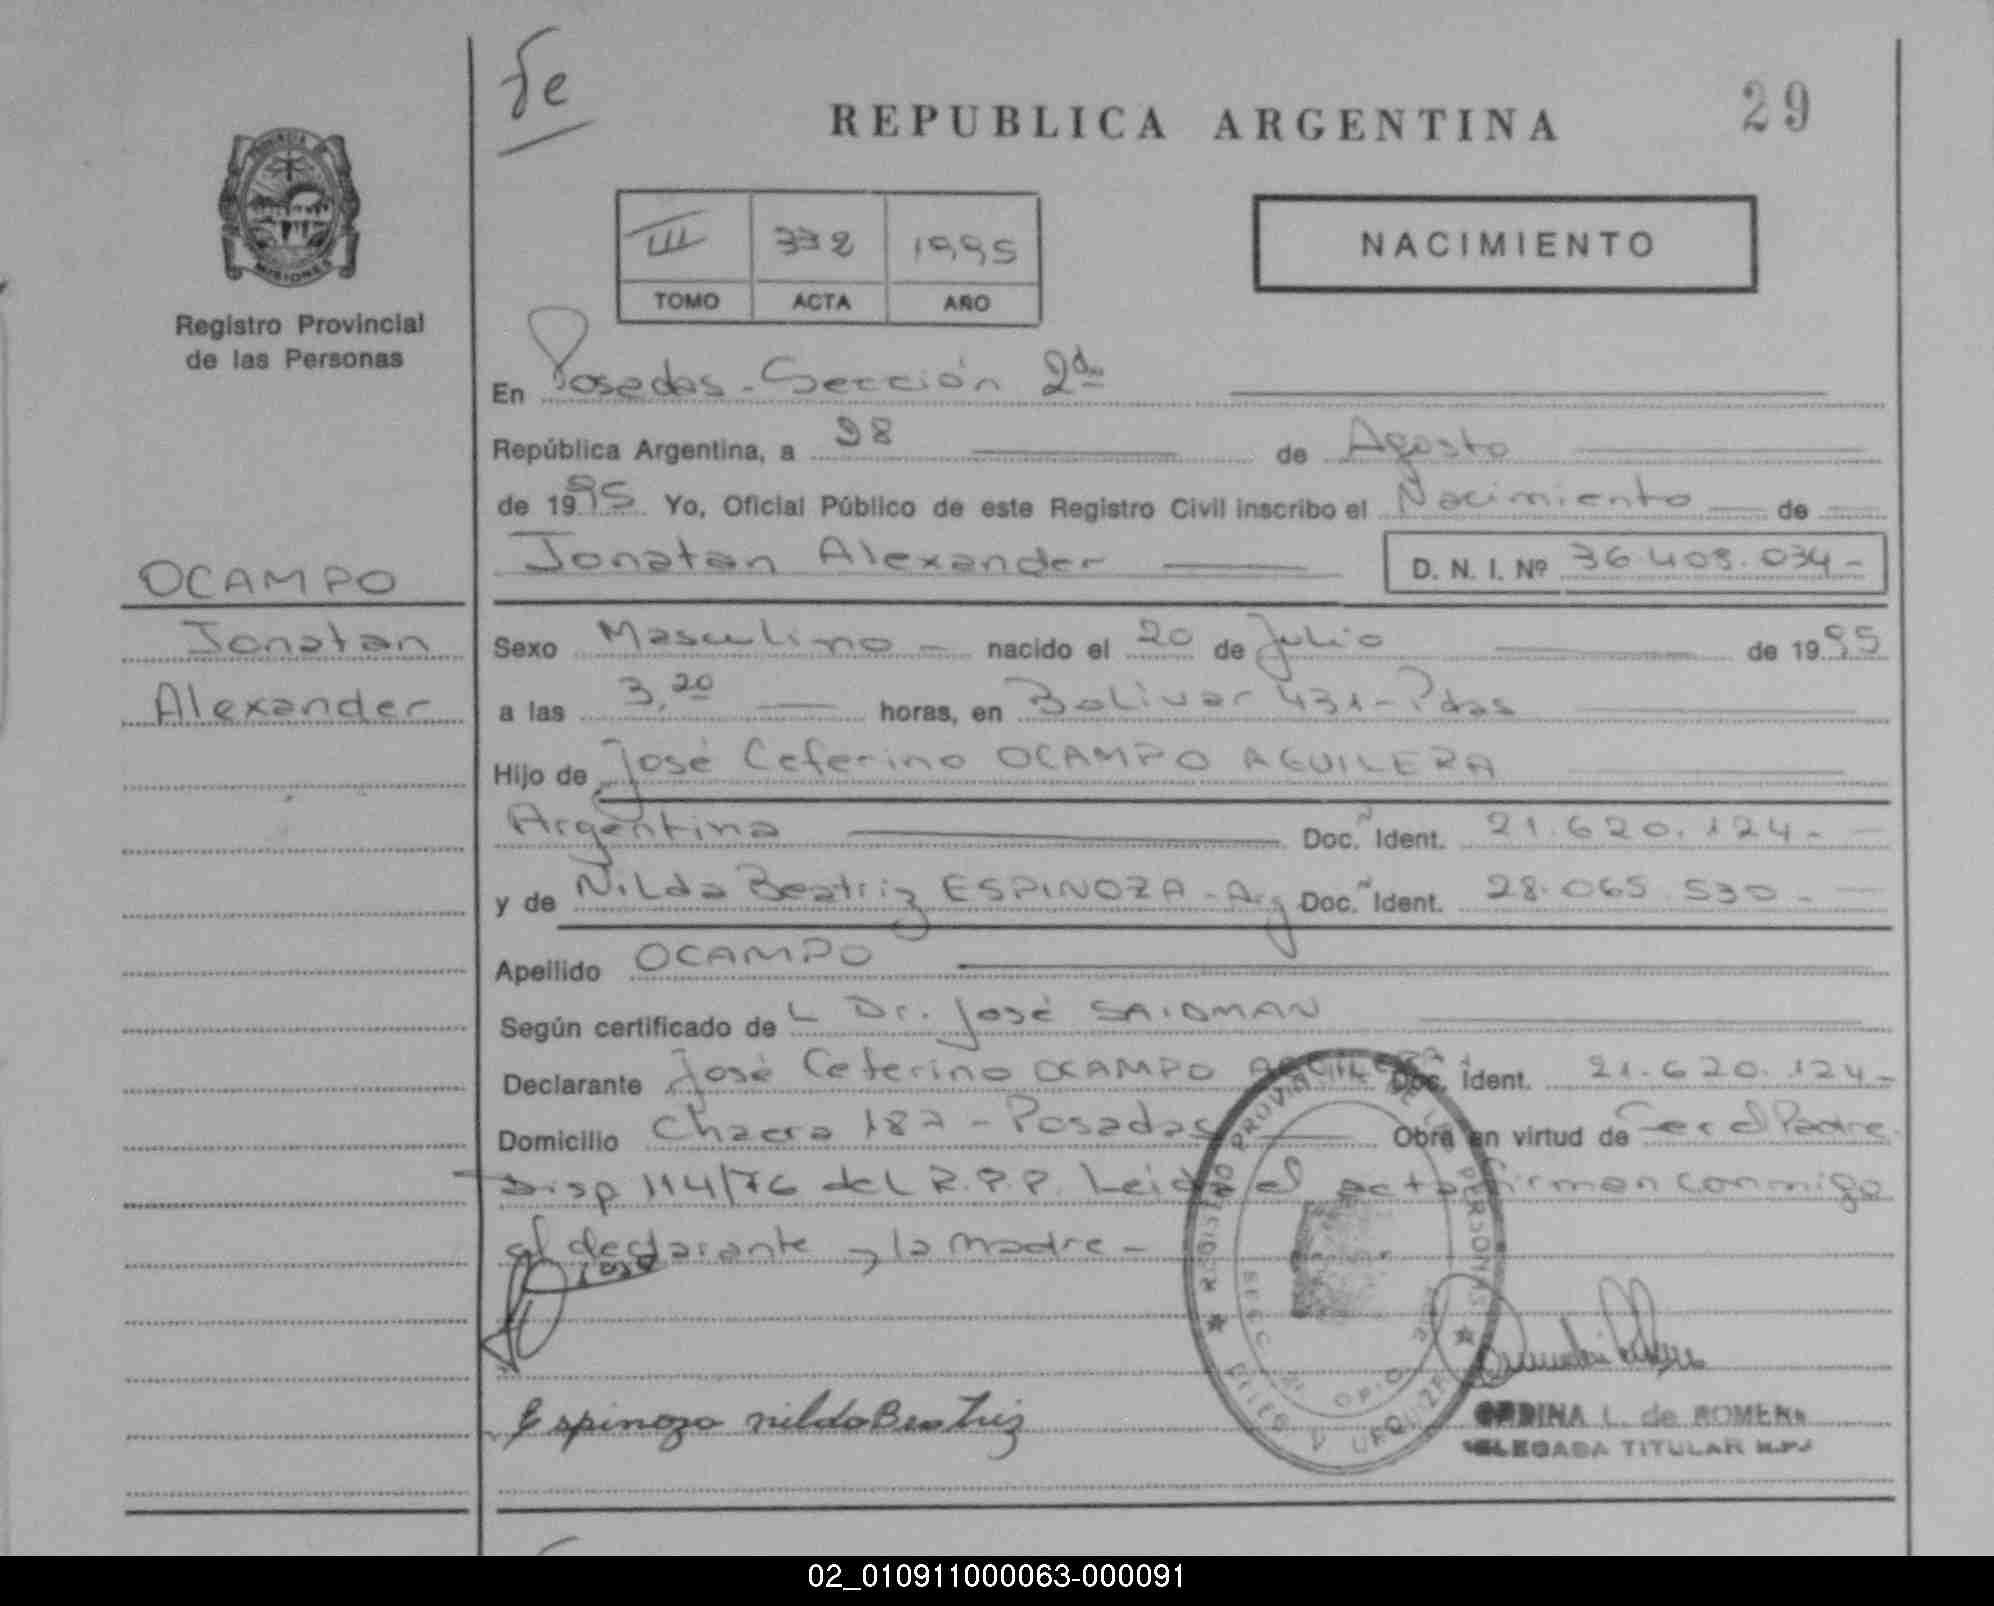 fe
REPUBLICA ARGENTINA
29
MISIONES
Registro Provincial
de las Personas
III 332 1995
TOMO ACTA AÑO
NACIMIENTO
En Posadas - Sección 2da
República Argentina, a 28 de Agosto
de 1995 Yo, Oficial Público de este Registro Civil inscribo el Nacimiento de
Jonatan Alexander D. N. I. Nº 36.408.034-
OCAMPO
Jonatan
Alexander
Sexo Masculino - nacido el 20 de Julio de 1995
a las 3,20 horas, en Bolivar 431 - Pdas
Hijo de José Ceferino OCAMPO AGUILERA
Argentina Doc. Ident. 21.620.124-
y de Nilda Beatriz ESPINOZA - Arg Doc. Ident. 28.065.530-
Apellido OCAMPO
Según certificado de L Dr. José SAIDMAN
Declarante José Ceferino OCAMPO AGUILERA Doc. Ident. 21.620.124-
Domicilio Chacra 187 - Posadas Obra en virtud de Ser el Padre.
Disp 114/76 del R.P.P. Leida el acta firman conmigo
el declarante y la madre -
Espinoza nilda Beatriz
REGISTRO PROVINCIAL DE LAS PERSONAS
L. de ROMERO
DELEGADA TITULAR R.P.P.
02_010911000063-000091